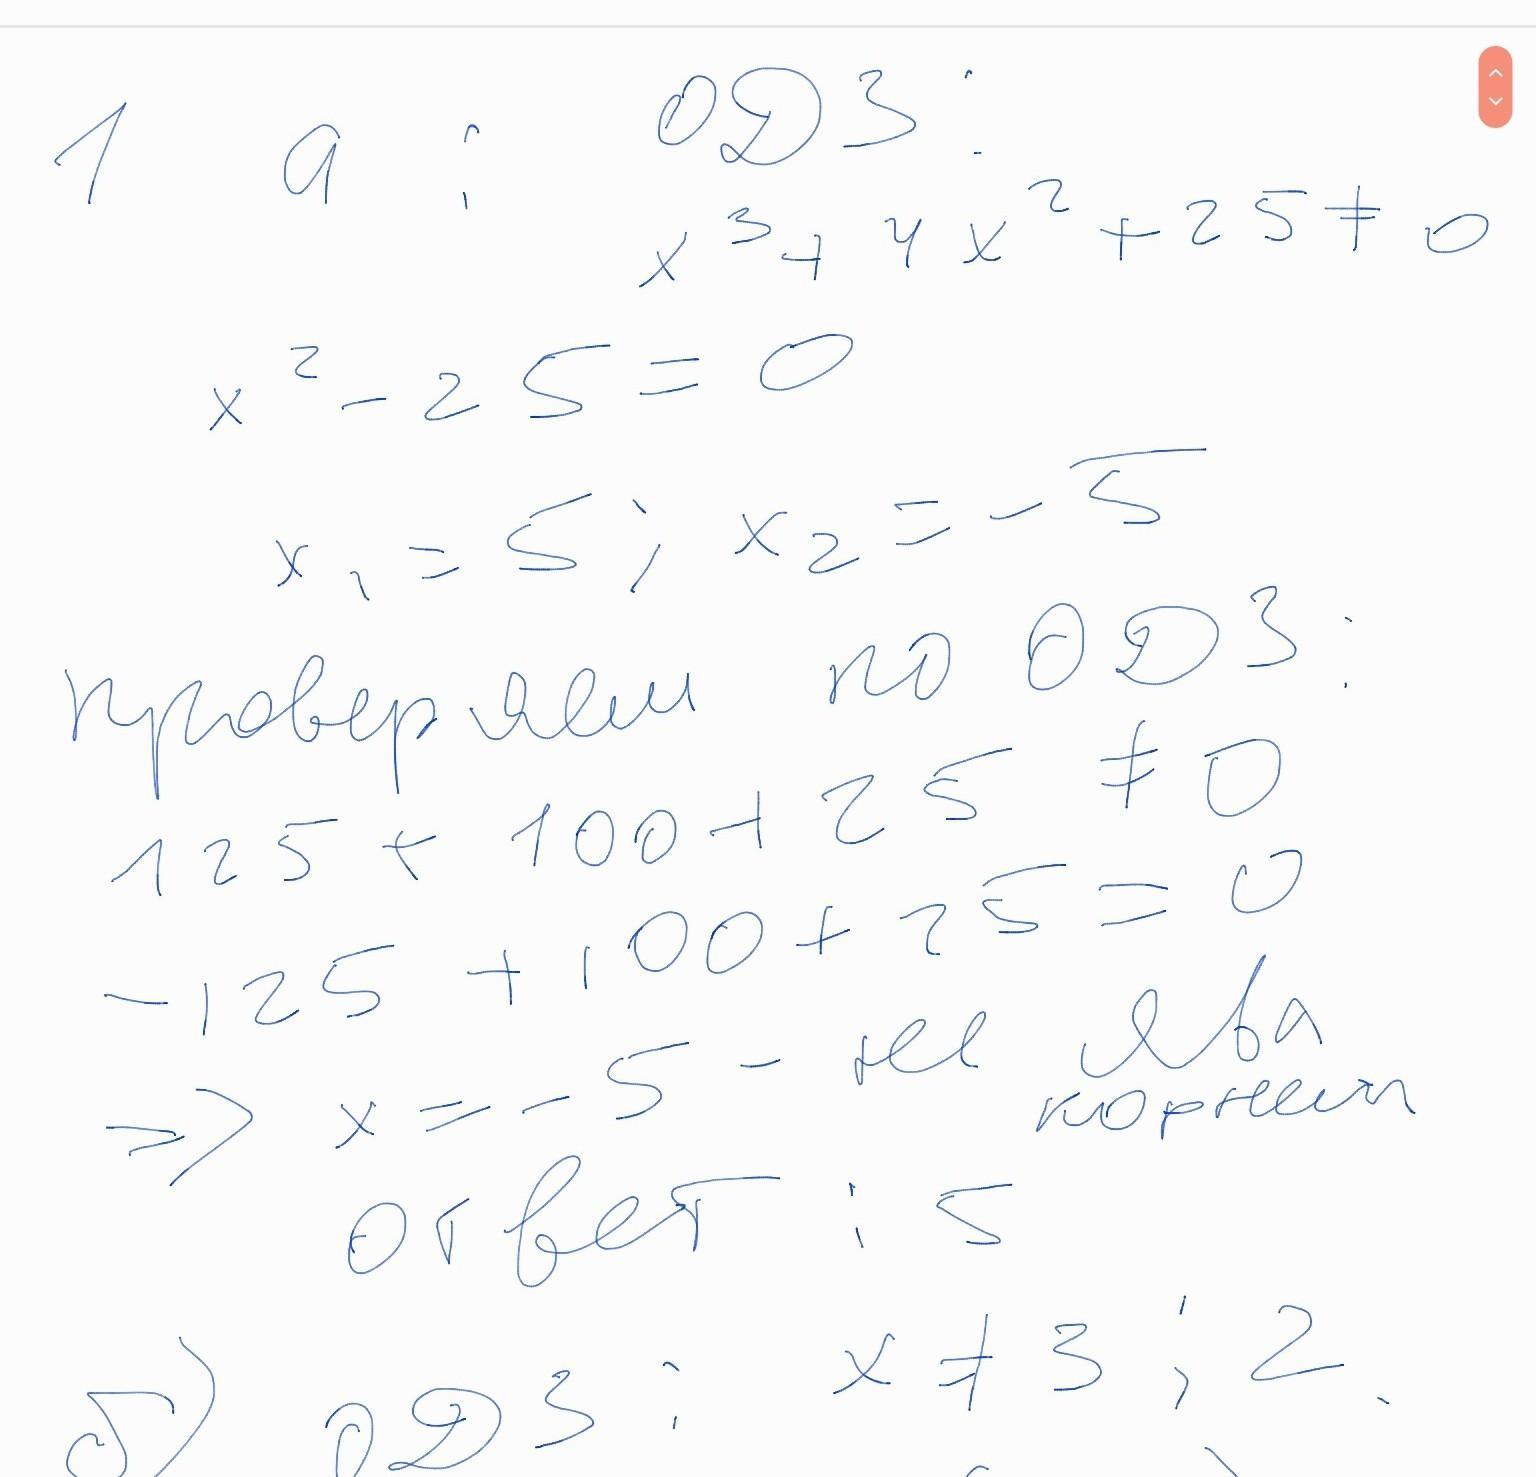 1 а : ОДЗ :
x³ + 4x² + 25 ≠ 0
x² - 25 = 0
x₁ = 5 ; x₂ = - 5
проверяем по ОДЗ :
125 + 100 + 25 ≠ 0
-125 + 100 + 25 = 0
=> x = - 5 - не явл
корнем
Ответ : 5
б) ОДЗ : x ≠ 3 ; 2.